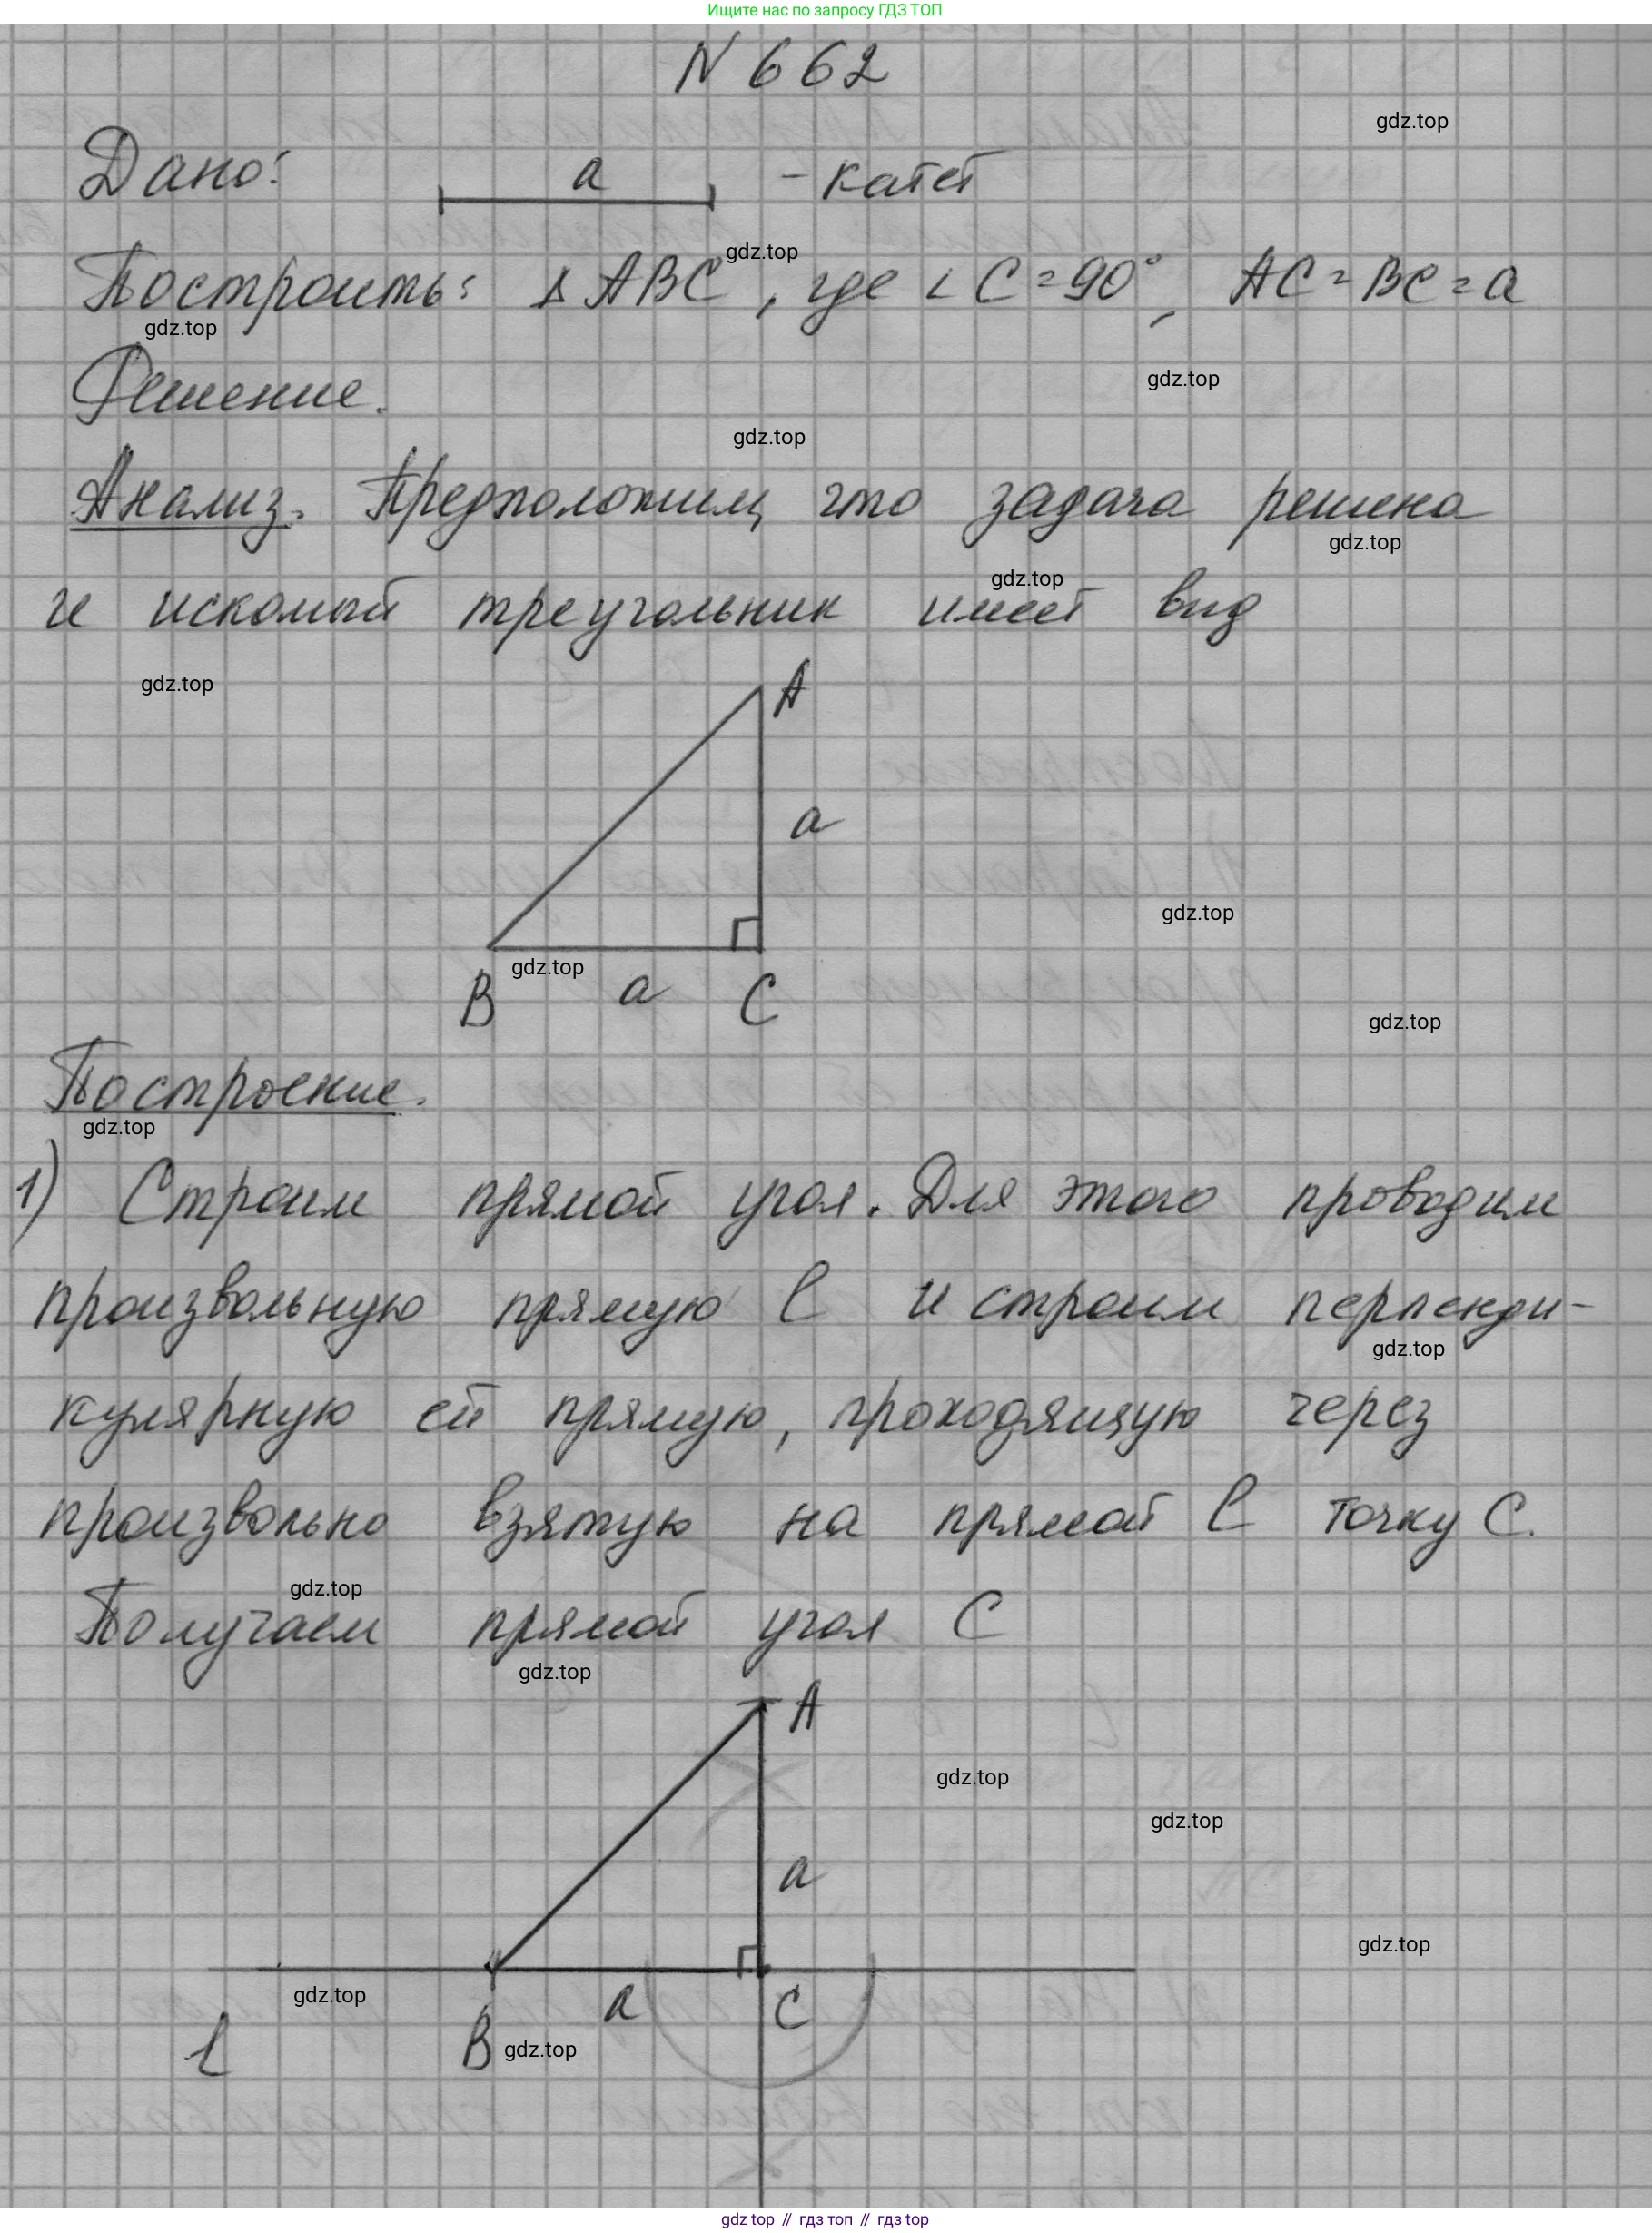 Ищите нас по запросу ГДЗ ТОП
N 662
gdz.top
Дано: a - катет
gdz.top
Построить: Δ ABC, где ∠ C = 90°, AC = BC = a
gdz.top
Решение.
gdz.top
gdz.top
Анализ. Предположим, что задача решена
gdz.top
gdz.top
и искомый треугольник имеет вид
gdz.top
A
a
gdz.top
gdz.top
B a C
gdz.top
Построение.
gdz.top
1) Строим прямой угол. Для этого проводим
произвольную прямую l и строим перпенди-
gdz.top
кулярную ей прямую, проходящую через
произвольно взятую на прямой l точку C.
gdz.top
Получаем прямой угол C
gdz.top
A
gdz.top
gdz.top
a
gdz.top
gdz.top
a C
l B gdz.top
gdz top // гдз топ // гдз top